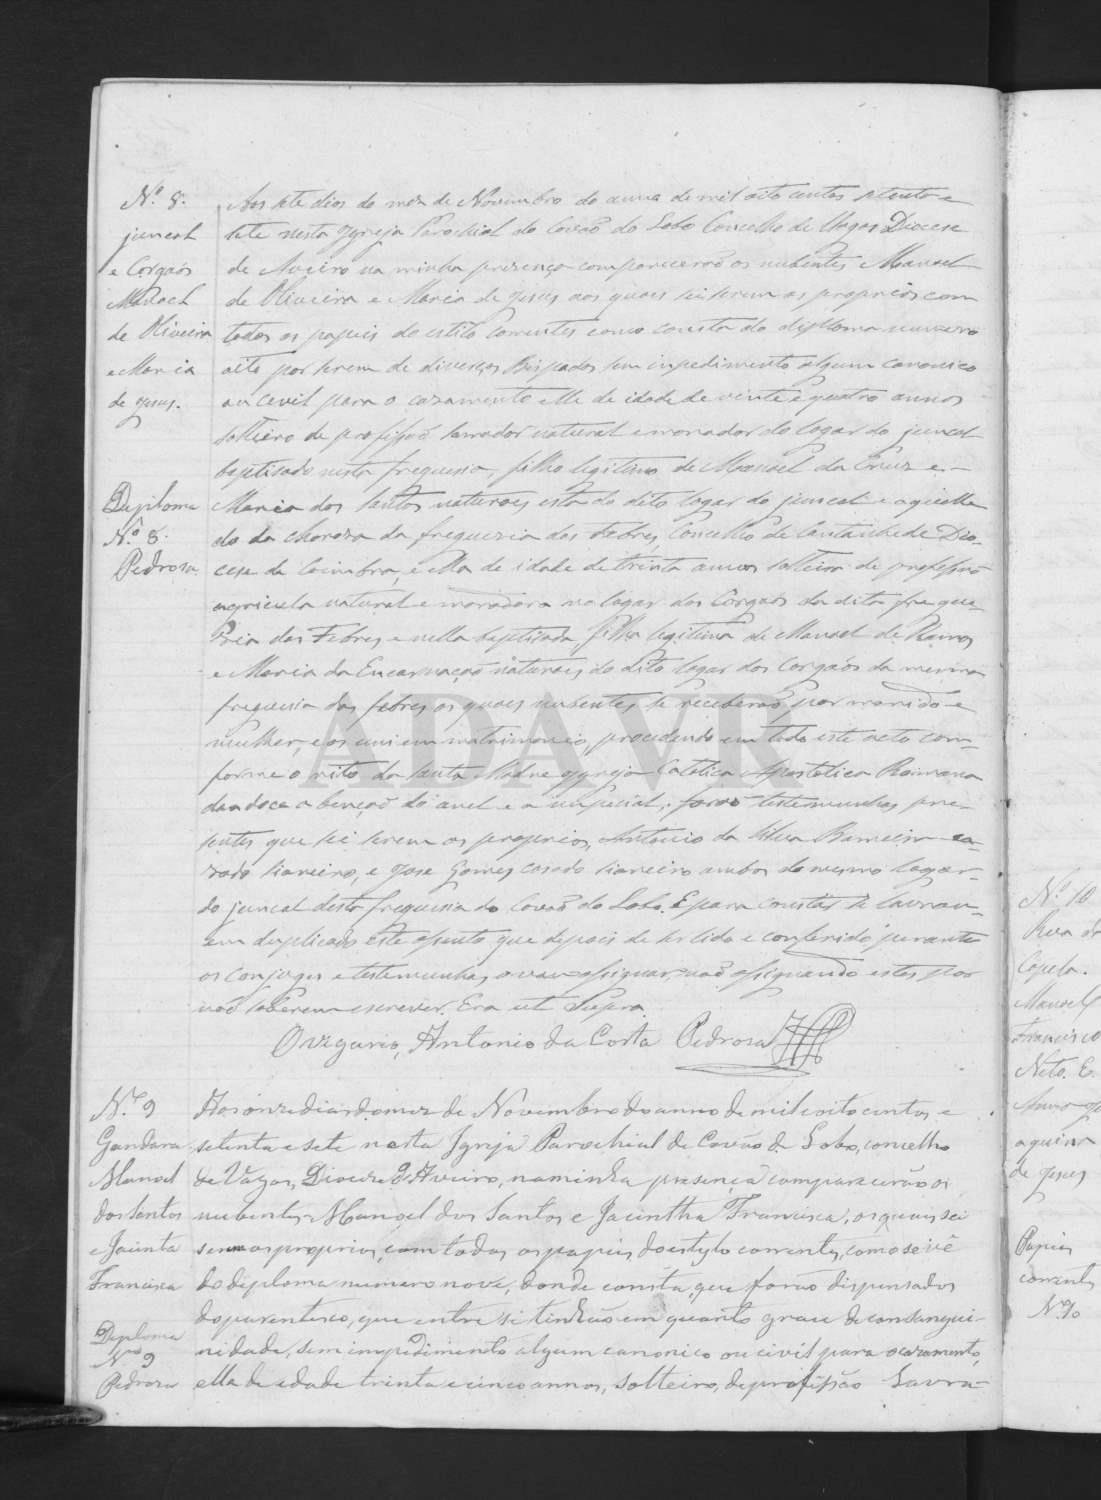 Nº 8.
juncal
e Corgaós
Manoel
de Oliveira
e Maria
de jesus.
Deploma
Nº 8.
Pedrosa
Aos sete dias do mez de Novembro do anno de mil oito centos setenta e
sete nesta Igreja Parochial do Covaõ do Lobo Concelho de Vagos Diocese
de Aveiro na minha prezença comparecerão os nubentes Manoel
de Oliveira e Maria de jesus aos quaes sei serem os proprios com
todos os papeis do estilo correntes como consta do diploma numero
oito por serem de diversos Bispados sem impedimento algum canonico
ou cevil para o cazamento elle de idade de vinte e quatro annos
solteiro de profissaõ lavrador natural e morador do lugar do juncal
baptisado nesta freguesia, filho legitimo de Manoel da Cruz e
Maria dos Santos naturaes esta do dito lugar do juncal e aquelle
do da chorosa da freguezia das Febres, Concelho de Cantanhede Dio-
cese de Coimbra, e ella de idade de trinta annos solteira de profissaõ
agricula natural e moradora no lugar dos Corgaós da dita fregue-
sia das Febres e nella baptisada filha legitima de Manoel de Ramos
e Maria da Encarnaçaõ naturaes do dito lugar dos Corgaós da mesma
freguesia das febres os quaes nubentes se receberaõ por marido e
mulher, e os uni em matrimonio, procedendo em todo este acto com-
forme o rito da Santa Madre Igreja Catolica Apostolica Romana
dandoce a bençaõ do anel e a nupcial; foraõ testemunhas pre-
sentes que sei serem os proprios, Antonio da Silva ca-
zado, e Jose Gomes casado ambos do mesmo lugar
do juncal desta freguesia do Covaõ do Lobo. E para constar se lavrou
em duplicado este assento que depois de ser lido e conferido perante
os conjuges e testemunhas, naõ assignando estes por
naõ saberem escrever. Era ut Supra
O vigario, Antonio da Costa Pedrosa
N.º 9
Gandara
Manoel
dos Santos
e Jacinta
Francisca
Deploma
Nº 9
Pedrosa
Aos onze dias do mez de Novembro do anno de mil e oito centos e
setenta e sete nesta Igreja Parochial de Covão do Lobo, concelho
de Vagos, Diocese d'Aveiro, na minha presença comparecerão os
nubentes Manoel dos Santos e Jacintha Francisca, os quaes sei
serem os proprios, com todos os papeis do estylo correntes, como se vê
do deploma numero nove, donde consta, que forão dispensados
do parentesco, que entre si tinhão em quarto grau de consangui-
nidade, sem impedimento algum canonico ou civil para o casamento,
elle de edade trinta e cinco annos, solteiro, de profissão Lavra-
Nº 10
Rua da
Capela.
Manoel
Francisco
Neto. E.
de jesus
Papeis
correntes
Nº 10
ADAVR